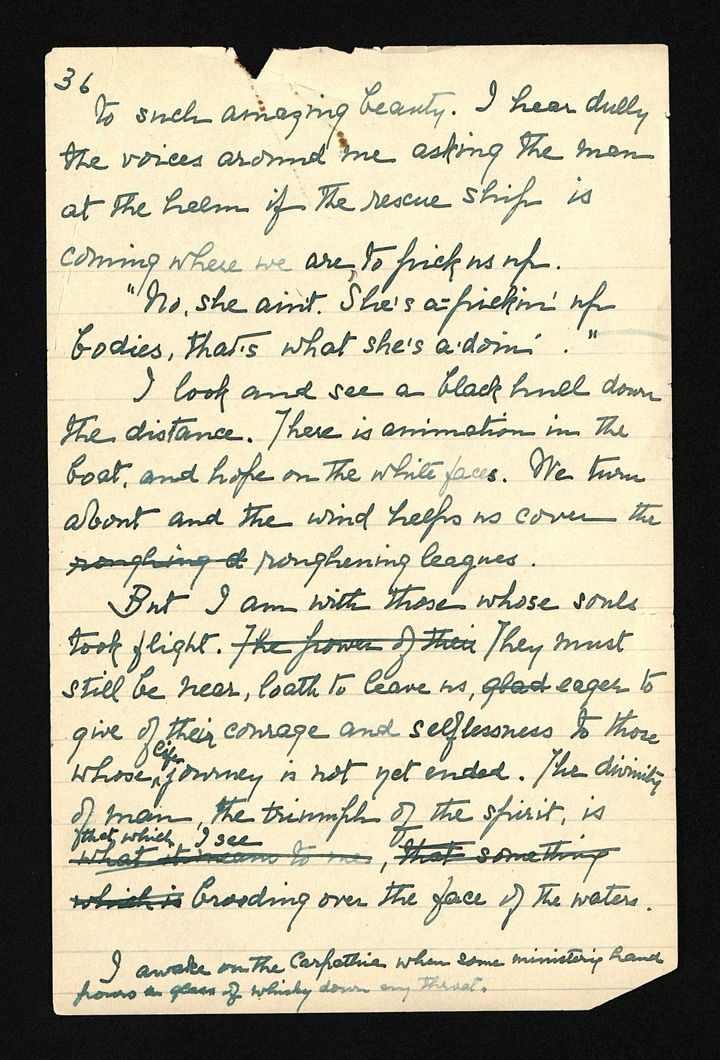 36
to such amazing beauty. I hear dully
the voices around me asking the man
at the helm if the rescue ship is
coming where we are, to pick us up.
"No, she ain't. She's a-pickin' up
bodies, that's what she's a-doin'."
I look and see a black hull down
the distance. There is animation in the
boat, and hope on the white faces. We turn
about and the wind helps us cover the
roughing d roughening leagues.
But I am with those whose souls
took flight. The power of their They must
still be near, loath to leave us, glad eager to
give of their courage and selflessness to those
life
whose journey is not yet ended. The divinity
of man, the triumph of the spirit, is
that which I see
what it means to me, that something
which is brooding over the face of the waters.
I awake on the Carpathia when some ministering hand
pours a glass of whisky down my throat.